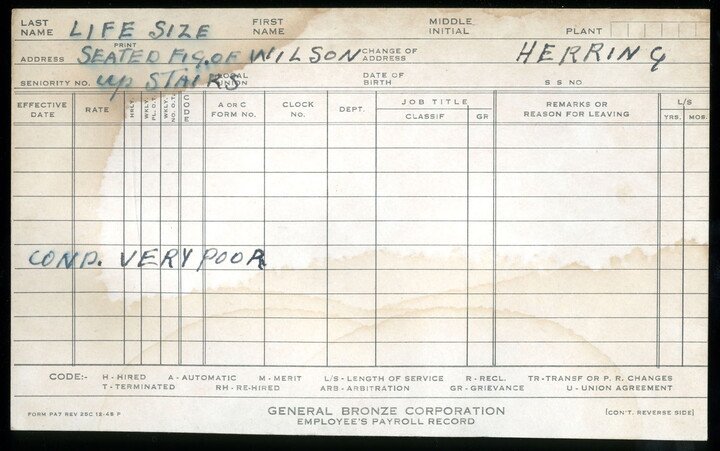 LAST NAME LIFE SIZE FIRST NAME MIDDLE INITIAL PLANT
PRINT
ADDRESS SEATED FIG. OF WILSON CHANGE OF ADDRESS HERRING
SENIORITY NO. UP STAIRS LOCAL UNION DATE OF BIRTH S. S NO
EFFECTIVE DATE RATE HRLY. WKLY. PL. O.T. WKLY. NO. O.T. CODE A OR C FORM No. CLOCK No. DEPT. JOB TITLE CLASSIF GR REMARKS OR REASON FOR LEAVING L/S YRS. MOS.
COND. VERY POOR
CODE:- H - HIRED A - AUTOMATIC M - MERIT L/S - LENGTH OF SERVICE R - RECL. TR-TRANSF OR P. R. CHANGES
T - TERMINATED RH - RE-HIRED ARB - ARBITRATION GR - GRIEVANCE U - UNION AGREEMENT
FORM PA7 REV 25C 12-48 P GENERAL BRONZE CORPORATION (CON'T. REVERSE SIDE)
EMPLOYEE'S PAYROLL RECORD